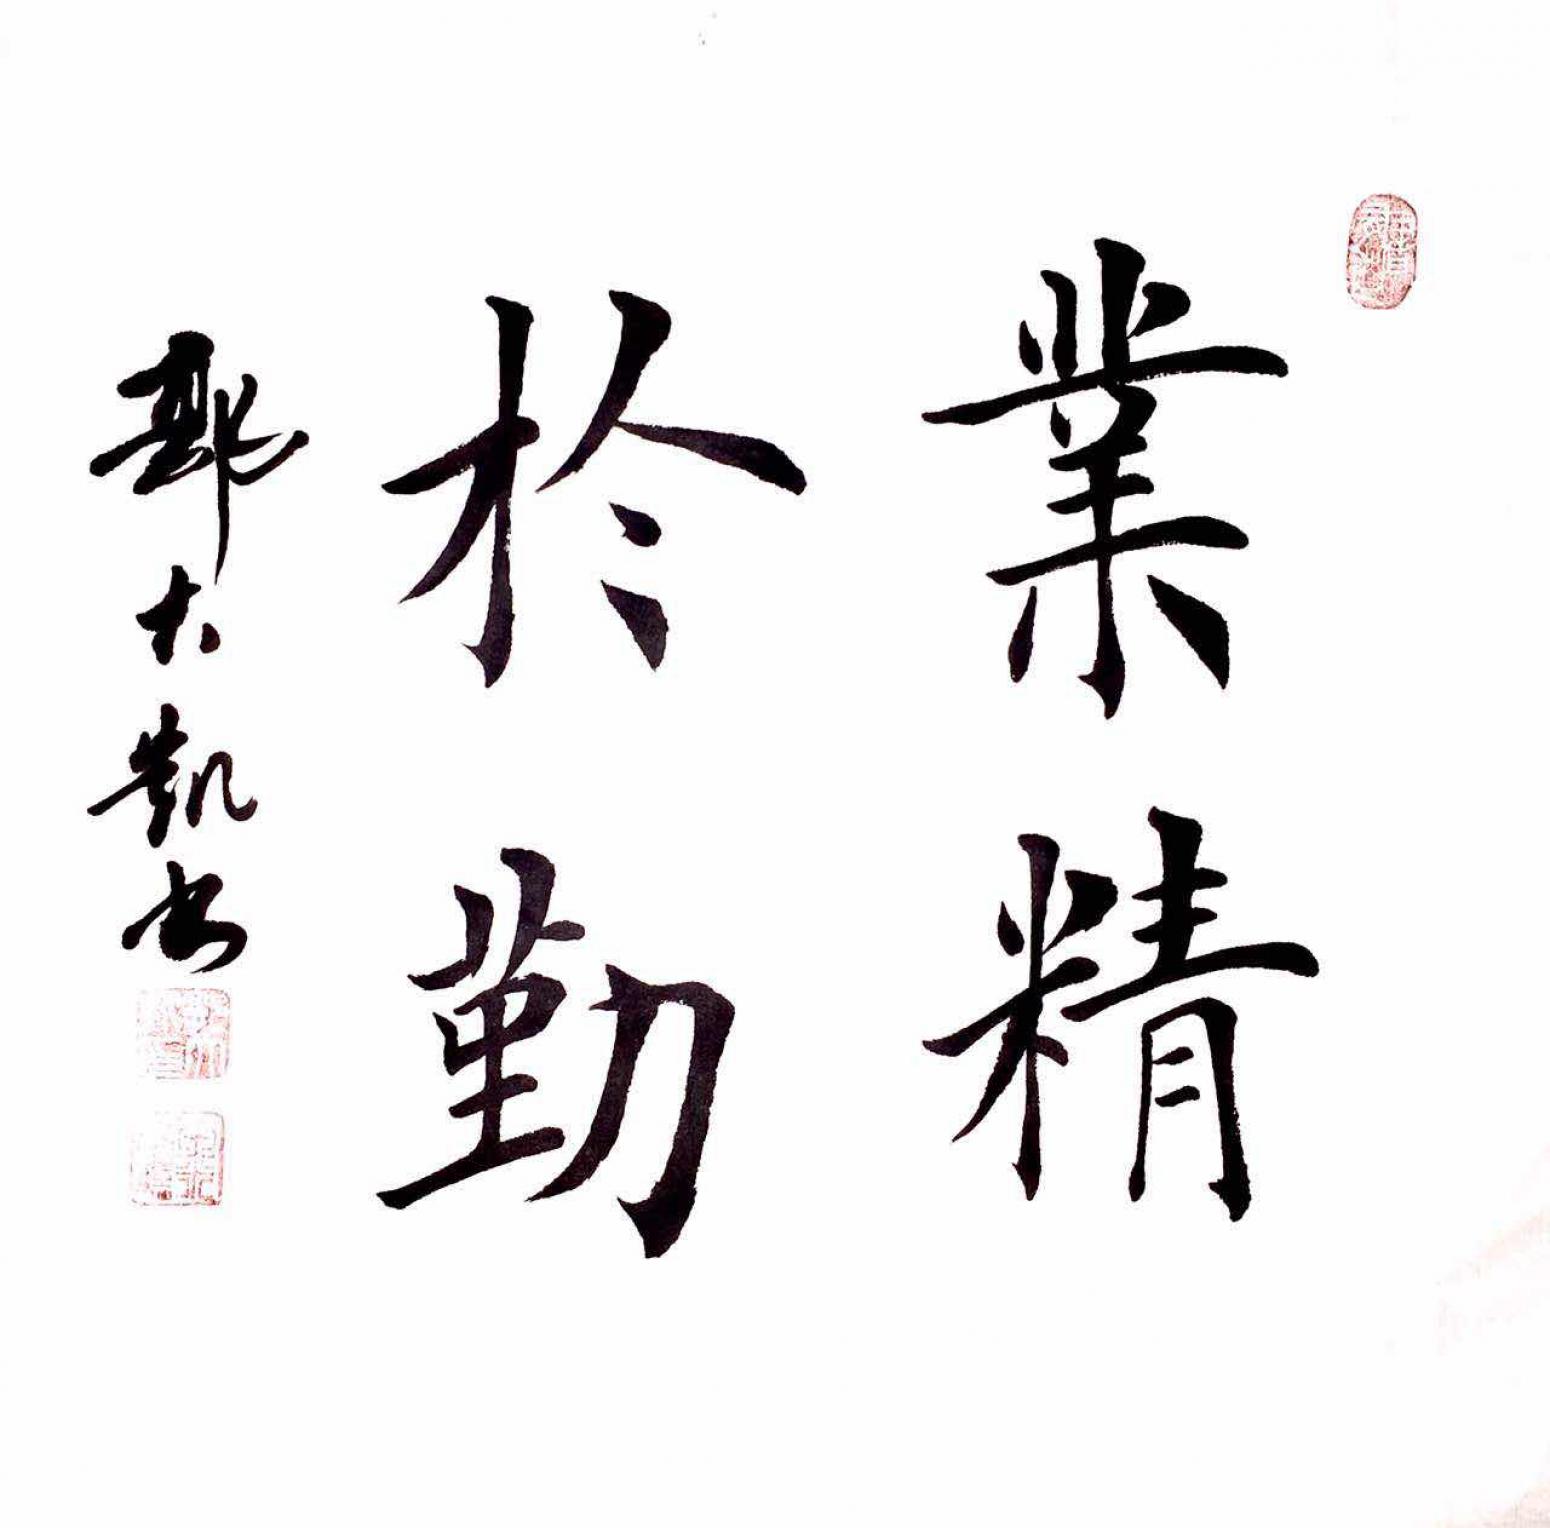 業精
於勤
郭大凱書